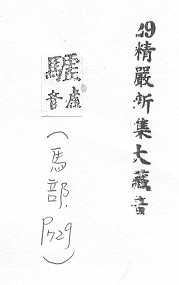 29精嚴新集大藏音
盧音
（馬部．P729）